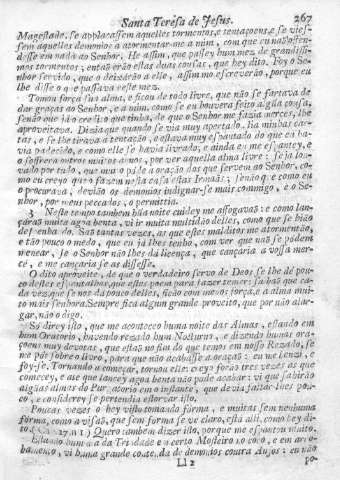 Santa Teresa de Jesus. 267
Magestade, se applacassem aquelles tormentos, e tentaçoens, e se vies-
sem aquelles demonios a atormentar-me a mim, com que eu naõ offen-
desse em nada ao Senhor. He assim, que passey hum mez de grandissi-
mos tormentos; entaõ eraõ estas duas cousas, que hey dito. Foy o Se-
nhor servido, que o deixáraõ a elle, assim mo escreveraõ, porque eu
lhe disse o que passava neste mez.
Tomou força sua alma, e ficou de todo livre, que naõ se fartava de
dar graças ao Senhor, e a mim, como se eu houvera feito alguã cousa,
senaõ que já o credito que tinha, de que o Senhor me fazia merces, lhe
aproveitava. Dizia que quando se via muy apertado, lia minhas car-
tas, e se lhe tirava a tentaçaõ, e estava muy espantado do que eu ha-
via padecido, e como elle se havia livrado, e ainda eu me espantey, e
o soffrera outros muitos annos, por ver aquella alma livre: seja lou-
vado por tudo, que muito póde a oraçaõ dos que servem ao Senhor, co-
mo eu creyo que o fazem nesta casa estas Irmãas; senaõ que como eu
o procurava, deviaõ os demonios indignar-se mais commigo, e o Se-
nhor, por meus peccados, o permittia.
3 Neste tempo tambem hũa noite cuidey me affogavaõ: e como lan-
çáraõ muita agua benta, vi ir muita multidaõ delles, como que se hiaõ
despenhando. Saõ tantas vezes, as que estes malditos me atormentaõ,
e taõ pouco o medo, que eu já lhes tenho, com ver que naõ se pódem
menear, se o Senhor naõ lhes dá licença, que cançaria a vossa mer-
cê, e me cançaria se as dissesse.
O dito aproveite, de que o verdadeiro servo de Deos se lhe dé pou-
co destes espantalhos, que estes poem para fazer temer: saibaõ que ca-
da vez, que se nos dá pouco delles, ficaõ com menos força, e a alma mui-
to mais senhora. Sempre fica algum grande proveito, que por naõ alar-
gar, naõ o digo.
Só direy isto, que me aconteceo huma noite das Almas, estando em
hum Oratorio, havendo rezado hum Nocturno, e dizendo humas ora-
çoens muy devotas, que estaõ no fim do que temos em nosso Rezado, se
me pôs sobre o livro, para que naõ acabasse a oraçaõ: eu me benzi, e
foy-se. Tornando a começar, tornou elle: creyo foraõ tres vezes as que
comecey, e até que lancey agua benta naõ pude acabar: vi que sahiraõ
alguãs almas do Purgatorio em o instante, que devia faltar-lhes pou-
co, e considerey se pertendia estorvar isto.
Poucas vezes o hey visto tomando fórma, e muitas sem nenhuma
fórma, como a visaõ, que sem fórma se ve claro, está alli, como hey di-
to. Quero tambem dizer isto, porque me espantou muito.
Estando hum dia da Trindade em certo Mosteiro no coro, e em arro-
bamento, vi huma grande contenda de demonios contra Anjos: eu naõ
Ll 2 po-